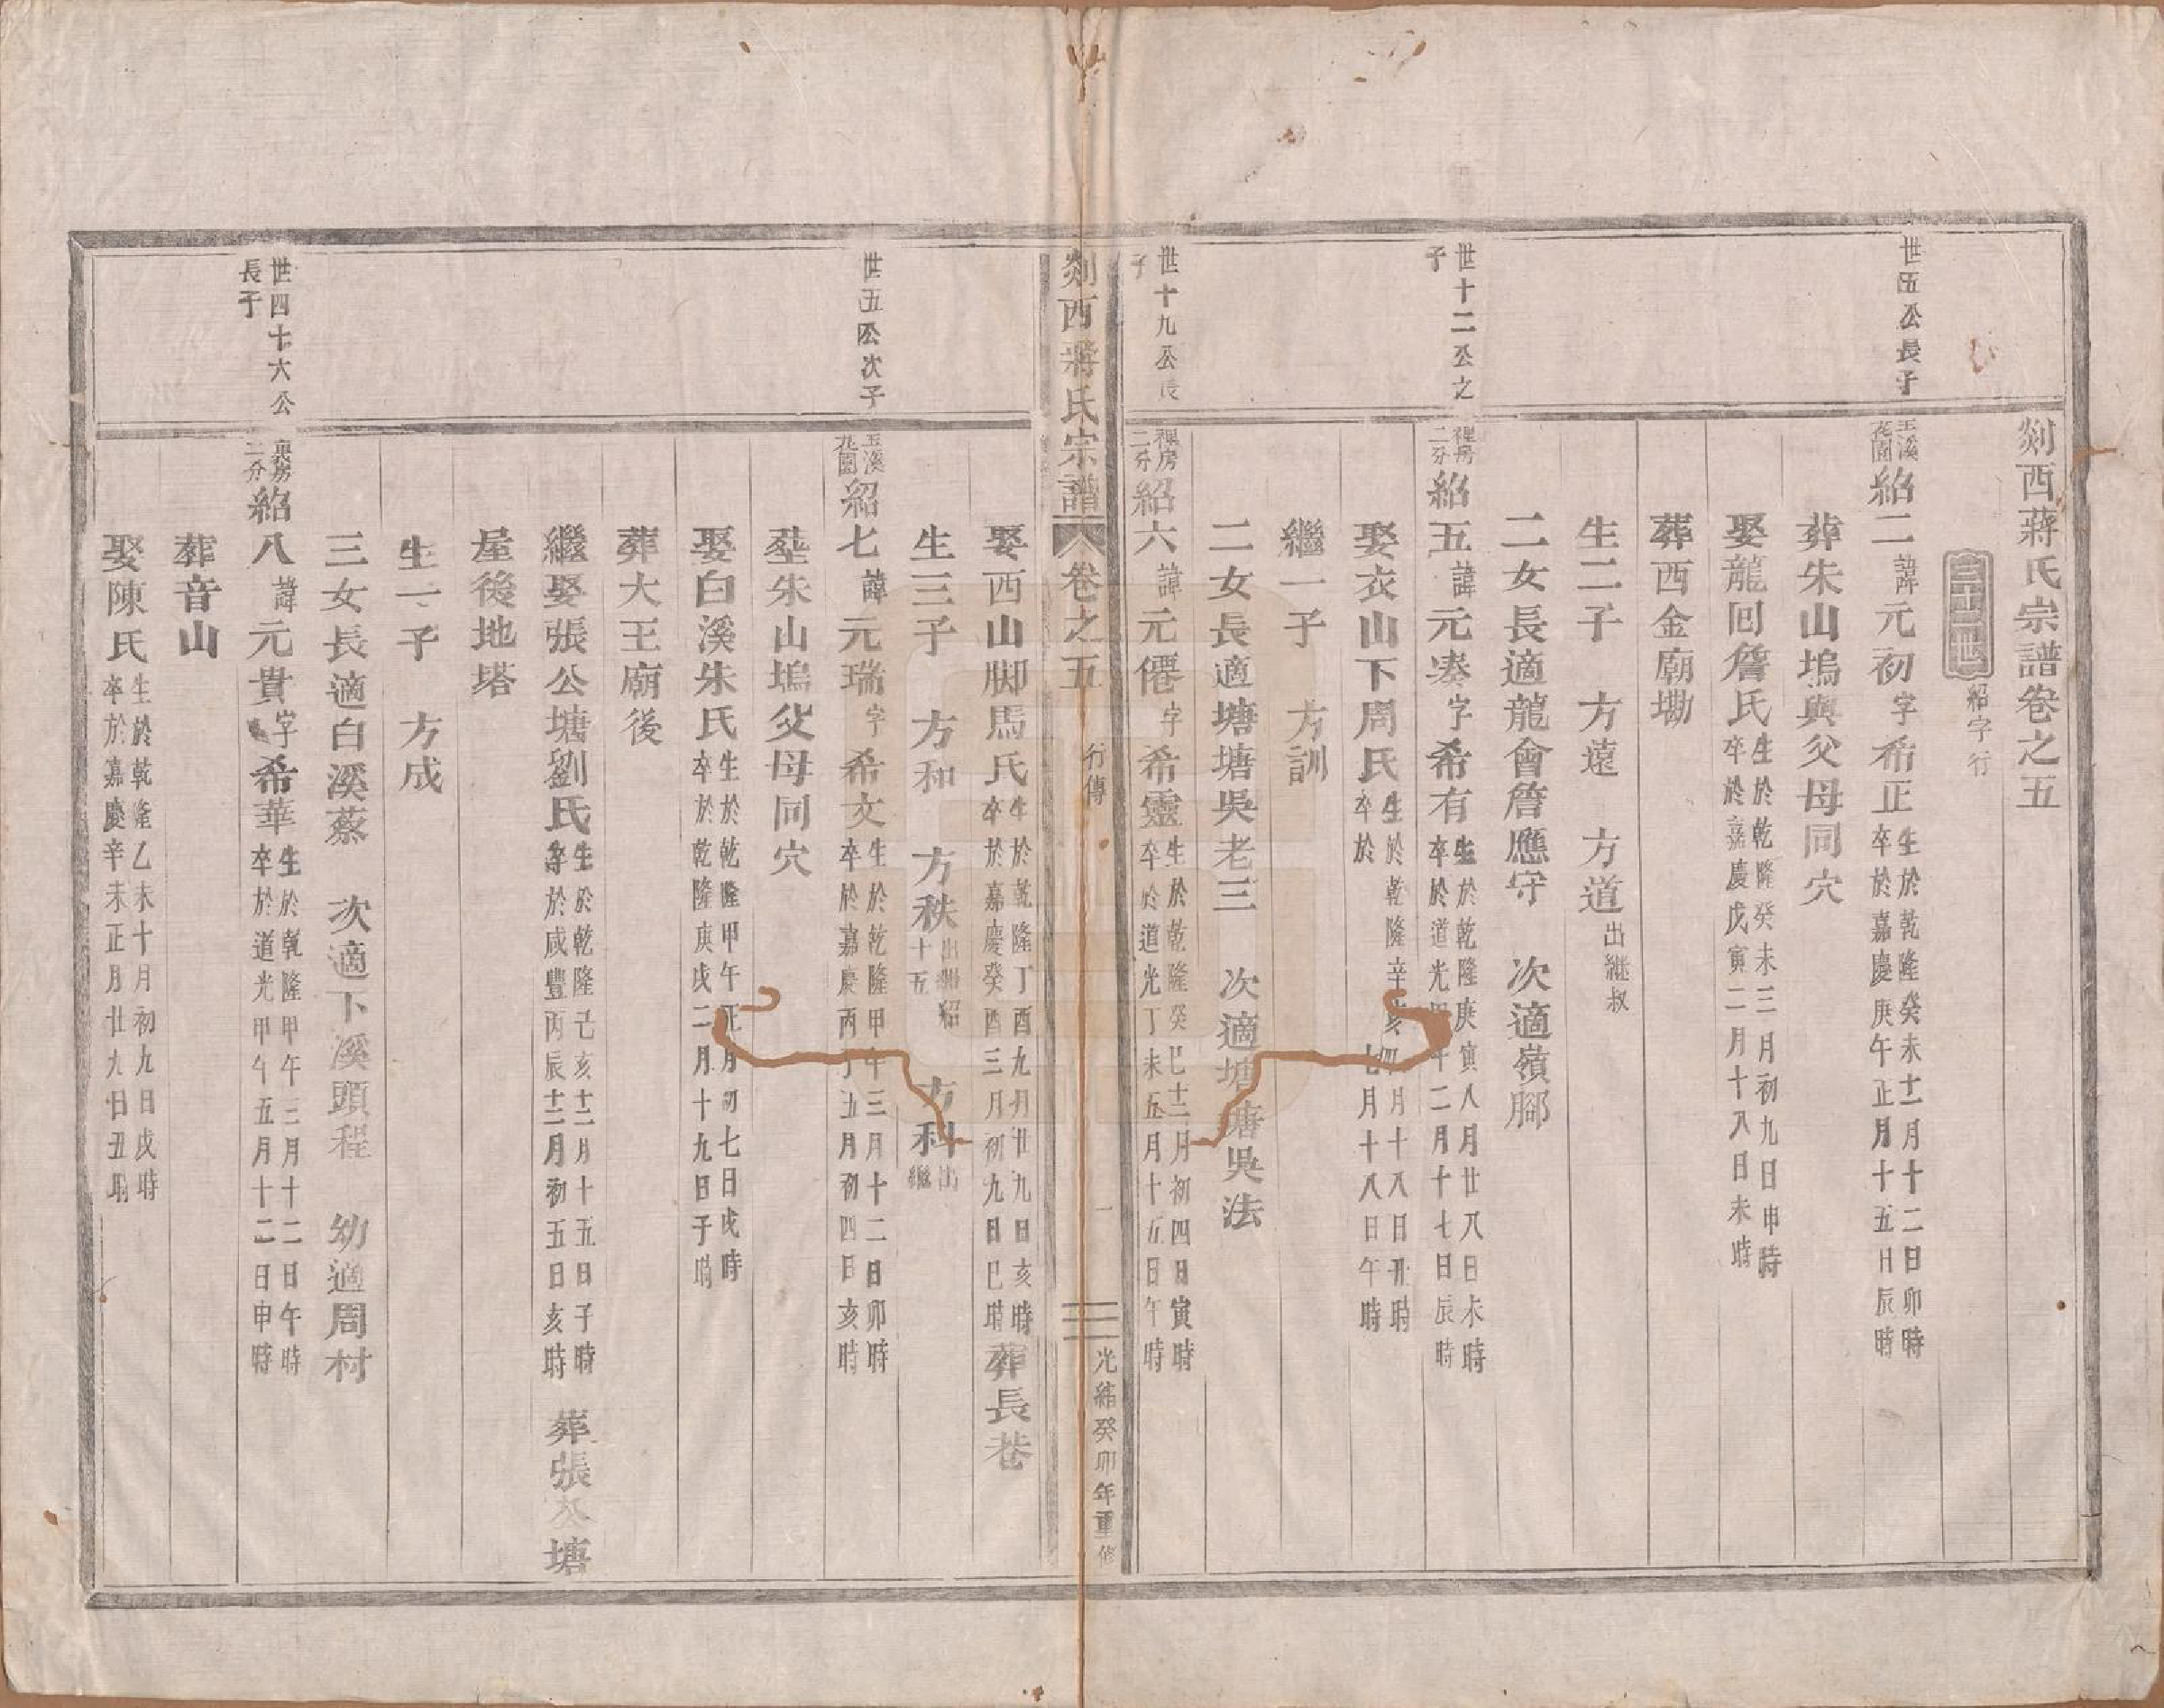 剡西蔣氏宗譜卷之五
三十四世 紹字行
世五公長子
玉溪花園紹二諱元初字希正生於乾隆癸未十一月十二日卯時
卒於嘉慶庚午正月十五日辰時
葬朱山塢與父母同穴
娶龍回詹氏生於乾隆癸未三月初九日申時
卒於嘉慶戊寅二月十八日未時
葬西金廟坳
生二子 方遠 方道出繼叔
二女長適龍會詹應守 次適嶺腳
世十二公之子
裡房二分紹五諱元湊字希有生於乾隆庚寅八月廿八日未時
卒於道光甲午二月十七日辰時
娶衣山下周氏生於乾隆辛亥四月十八日丑時
卒於 七月十八日午時
繼一子 方訓
二女長適塘塘吳老三 次適塘塘吳法
世十九公長子
裡房二分紹六諱元僊字希靈生於乾隆癸巳十二月初四日寅時
卒於道光丁未五月十五日午時
剡西蔣氏宗譜 卷之五 行傳 一 光緒癸卯年重修
娶西山腳馬氏生於乾隆丁酉九月廿九日亥時
卒於嘉慶癸酉三月初九日巳時葬長巷
生三子 方和 方秩出繼紹十五 方科出繼
世五公次子
玉溪花園紹七諱元瑞字希文生於乾隆甲午三月十二日卯時
卒於嘉慶丙子五月初四日亥時
塟朱山塢父母同穴
娶白溪朱氏生於乾隆甲午正月初七日戌時
卒於乾隆庚戌二月十九日子時
葬大王廟後
繼娶張公塘劉氏生於乾隆己亥十二月十五日子時
卒於咸豐丙辰十二月初五日亥時 葬張公塘
屋後地塔
生一子 方成
三女長適白溪蔡 次適下溪頭程 幼適周村
世四十六公長子
裏房二分紹八諱元貴字希華生於乾隆甲午三月十二日午時
卒於道光甲午五月十二日申時
葬音山
娶陳氏生於乾隆乙未十月初九日戌時
卒於嘉慶辛未正月廿九日丑時